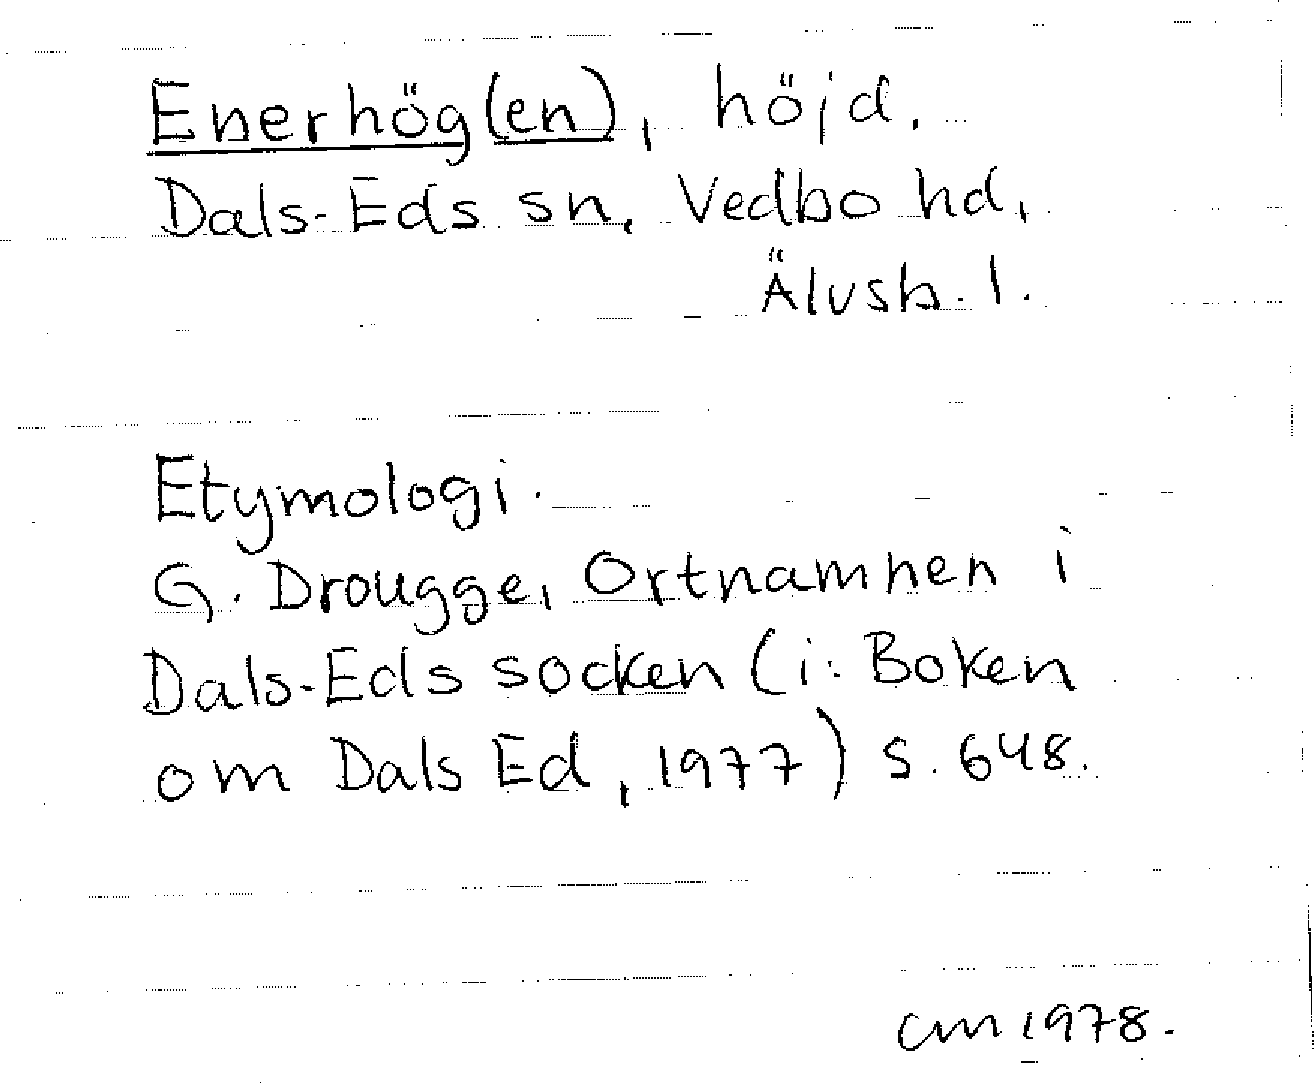 Enerhög(en), höjd.
Dals-Eds sn, Vedbo hd,
Älvsb. l.
Etymologi.
G. Drougge, Ortnamnen i
Dals-Eds socken (i: Boken
om Dals Ed, 1977) s. 648.
CM 1978.